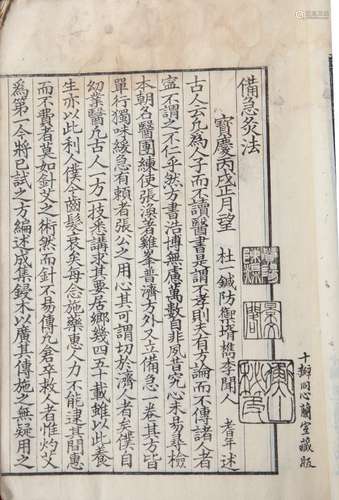 十瓣同心蘭室藏版
備急灸法
寶慶丙戌正月望 杜一鍼防禦壻檇李聞人 耆年 述
古人云凡為人子而不讀醫書是謂不孝則夫有方論而不傳諸人者
寧不謂之不仁乎然方書浩博無慮萬數自非夙昔究心未易尋檢
本朝名醫團練使張渙著雞峯普濟方外又立備急一卷其方皆
單行獨味緩急有賴者張公之用心其可謂切於濟人者矣僕自
幼業醫凡古人一方一技悉講求其要居鄉幾四五十載雖以此養
生亦以此利人僕今齒髮衰矣每念施藥惠人力不能逮其間惠
而不費者莫如針艾之術然而針不易傳凡倉卒救人者惟灼艾
為第一今將已試之方編述成集鋟木以廣其傳施之無疑用之